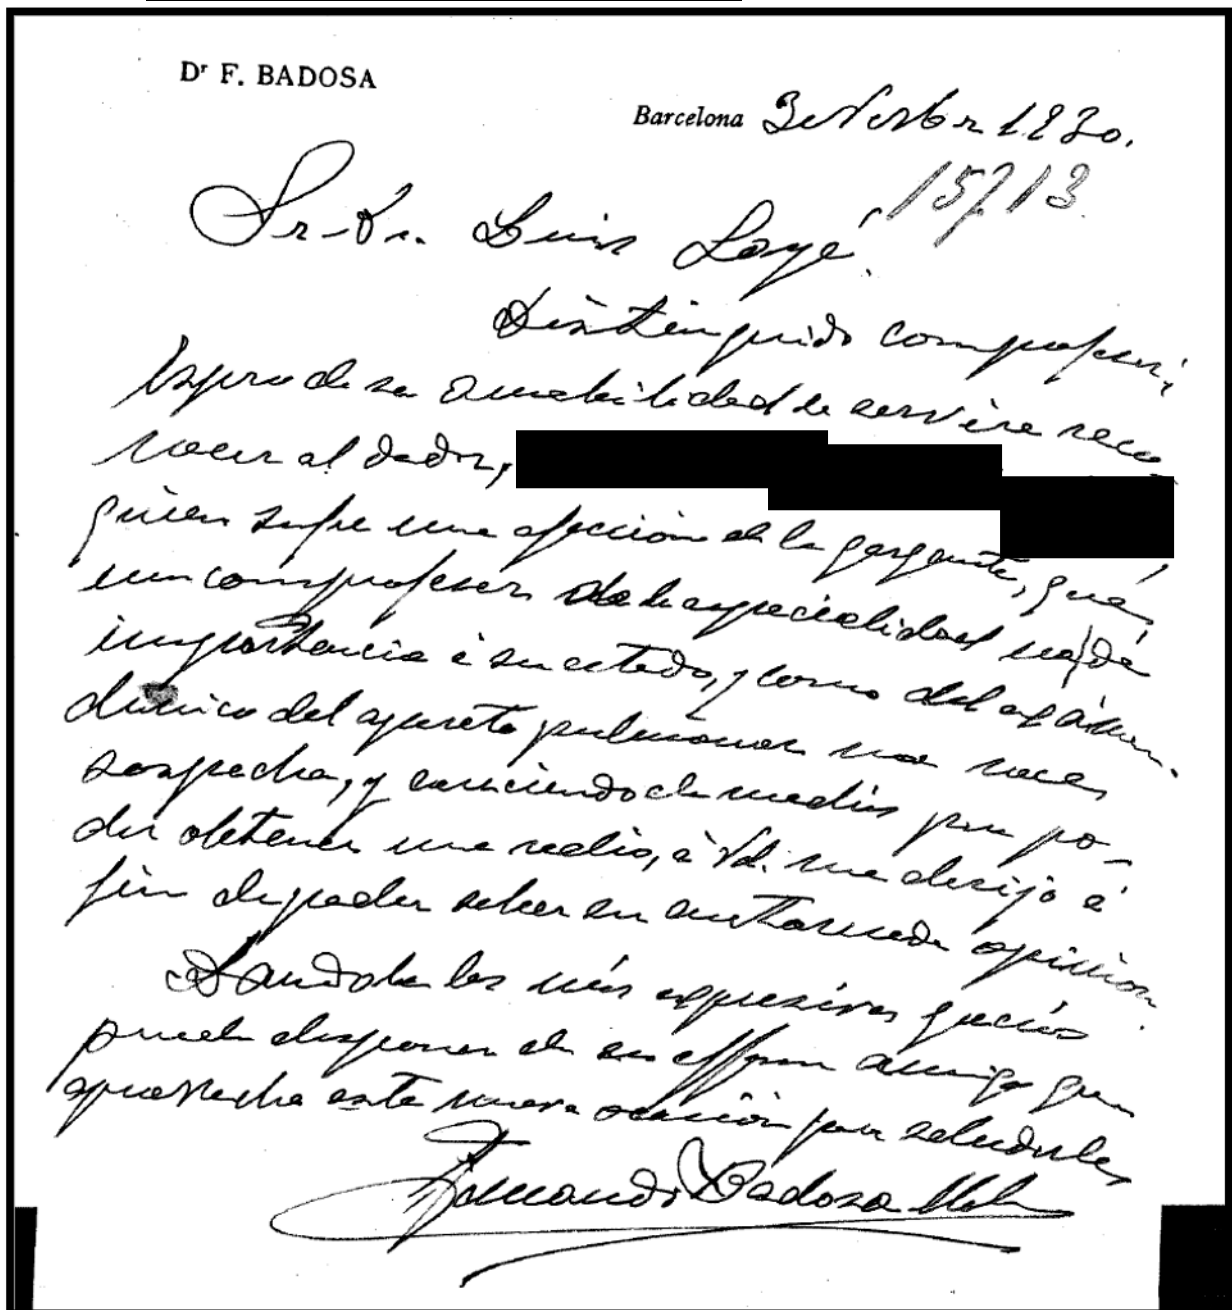 Dr F. BADOSA
Barcelona 3 1930.
15713
Sr. Dr. Luis Sayé.
Distinguido comprofesor;
Espero de su amabilidad se servira reco-
nocer al dador,
quien sufre una afección de la garganta, que
un comprofesor de la especialidad no dá
importancia á su estado, y como del exámen
clinico del aparato pulmonar me nace
sospecha, y careciendo de medios para po-
der obtener una radio, á Vd. me dirijo á
fin de poder saber su autorizada opinión.
Dandole las más expresivas gracias
puede disponer de su affmo amigo que
aprovecha esta nueva ocasión para saludarle,
Fernando Badosa